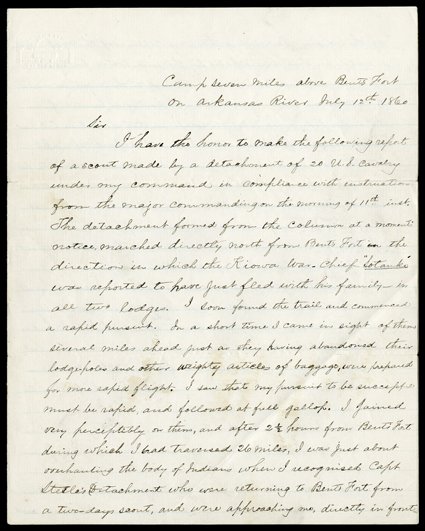 Camp seven miles above Bents Fort
on Arkansas River July 12th 1860
Sir
I have the honor to make the following report
of a scout made by a detachment of 20 U.S. Cavalry
under my command in compliance with instructions
from the major commanding on the morning of 11th inst.
The detachment formed from the column at a moments
notice, marched directly north from Bents Fort in the
direction in which the Kiowa War-Chief "Satanke"
was reported to have just fled with his family - in
all two lodges. I soon found the trail and commenced
a rapid pursuit. In a short time I came in sight of them
several miles ahead just as they having abandoned their
lodgepoles and other weighty articles of baggage, were prepared
for more rapid flight. I saw that my pursuit to be
must be rapid, and followed at full gallop. I gained
very perceptibly on them, and after 2½ hours from Bents Fort
during which I had traversed 26 miles, I was just about
overhauling the body of Indians when I recognised Capt
Steele's Detachment who were returning to Bents Fort from
a two-days scout, and were approaching me, directly in front